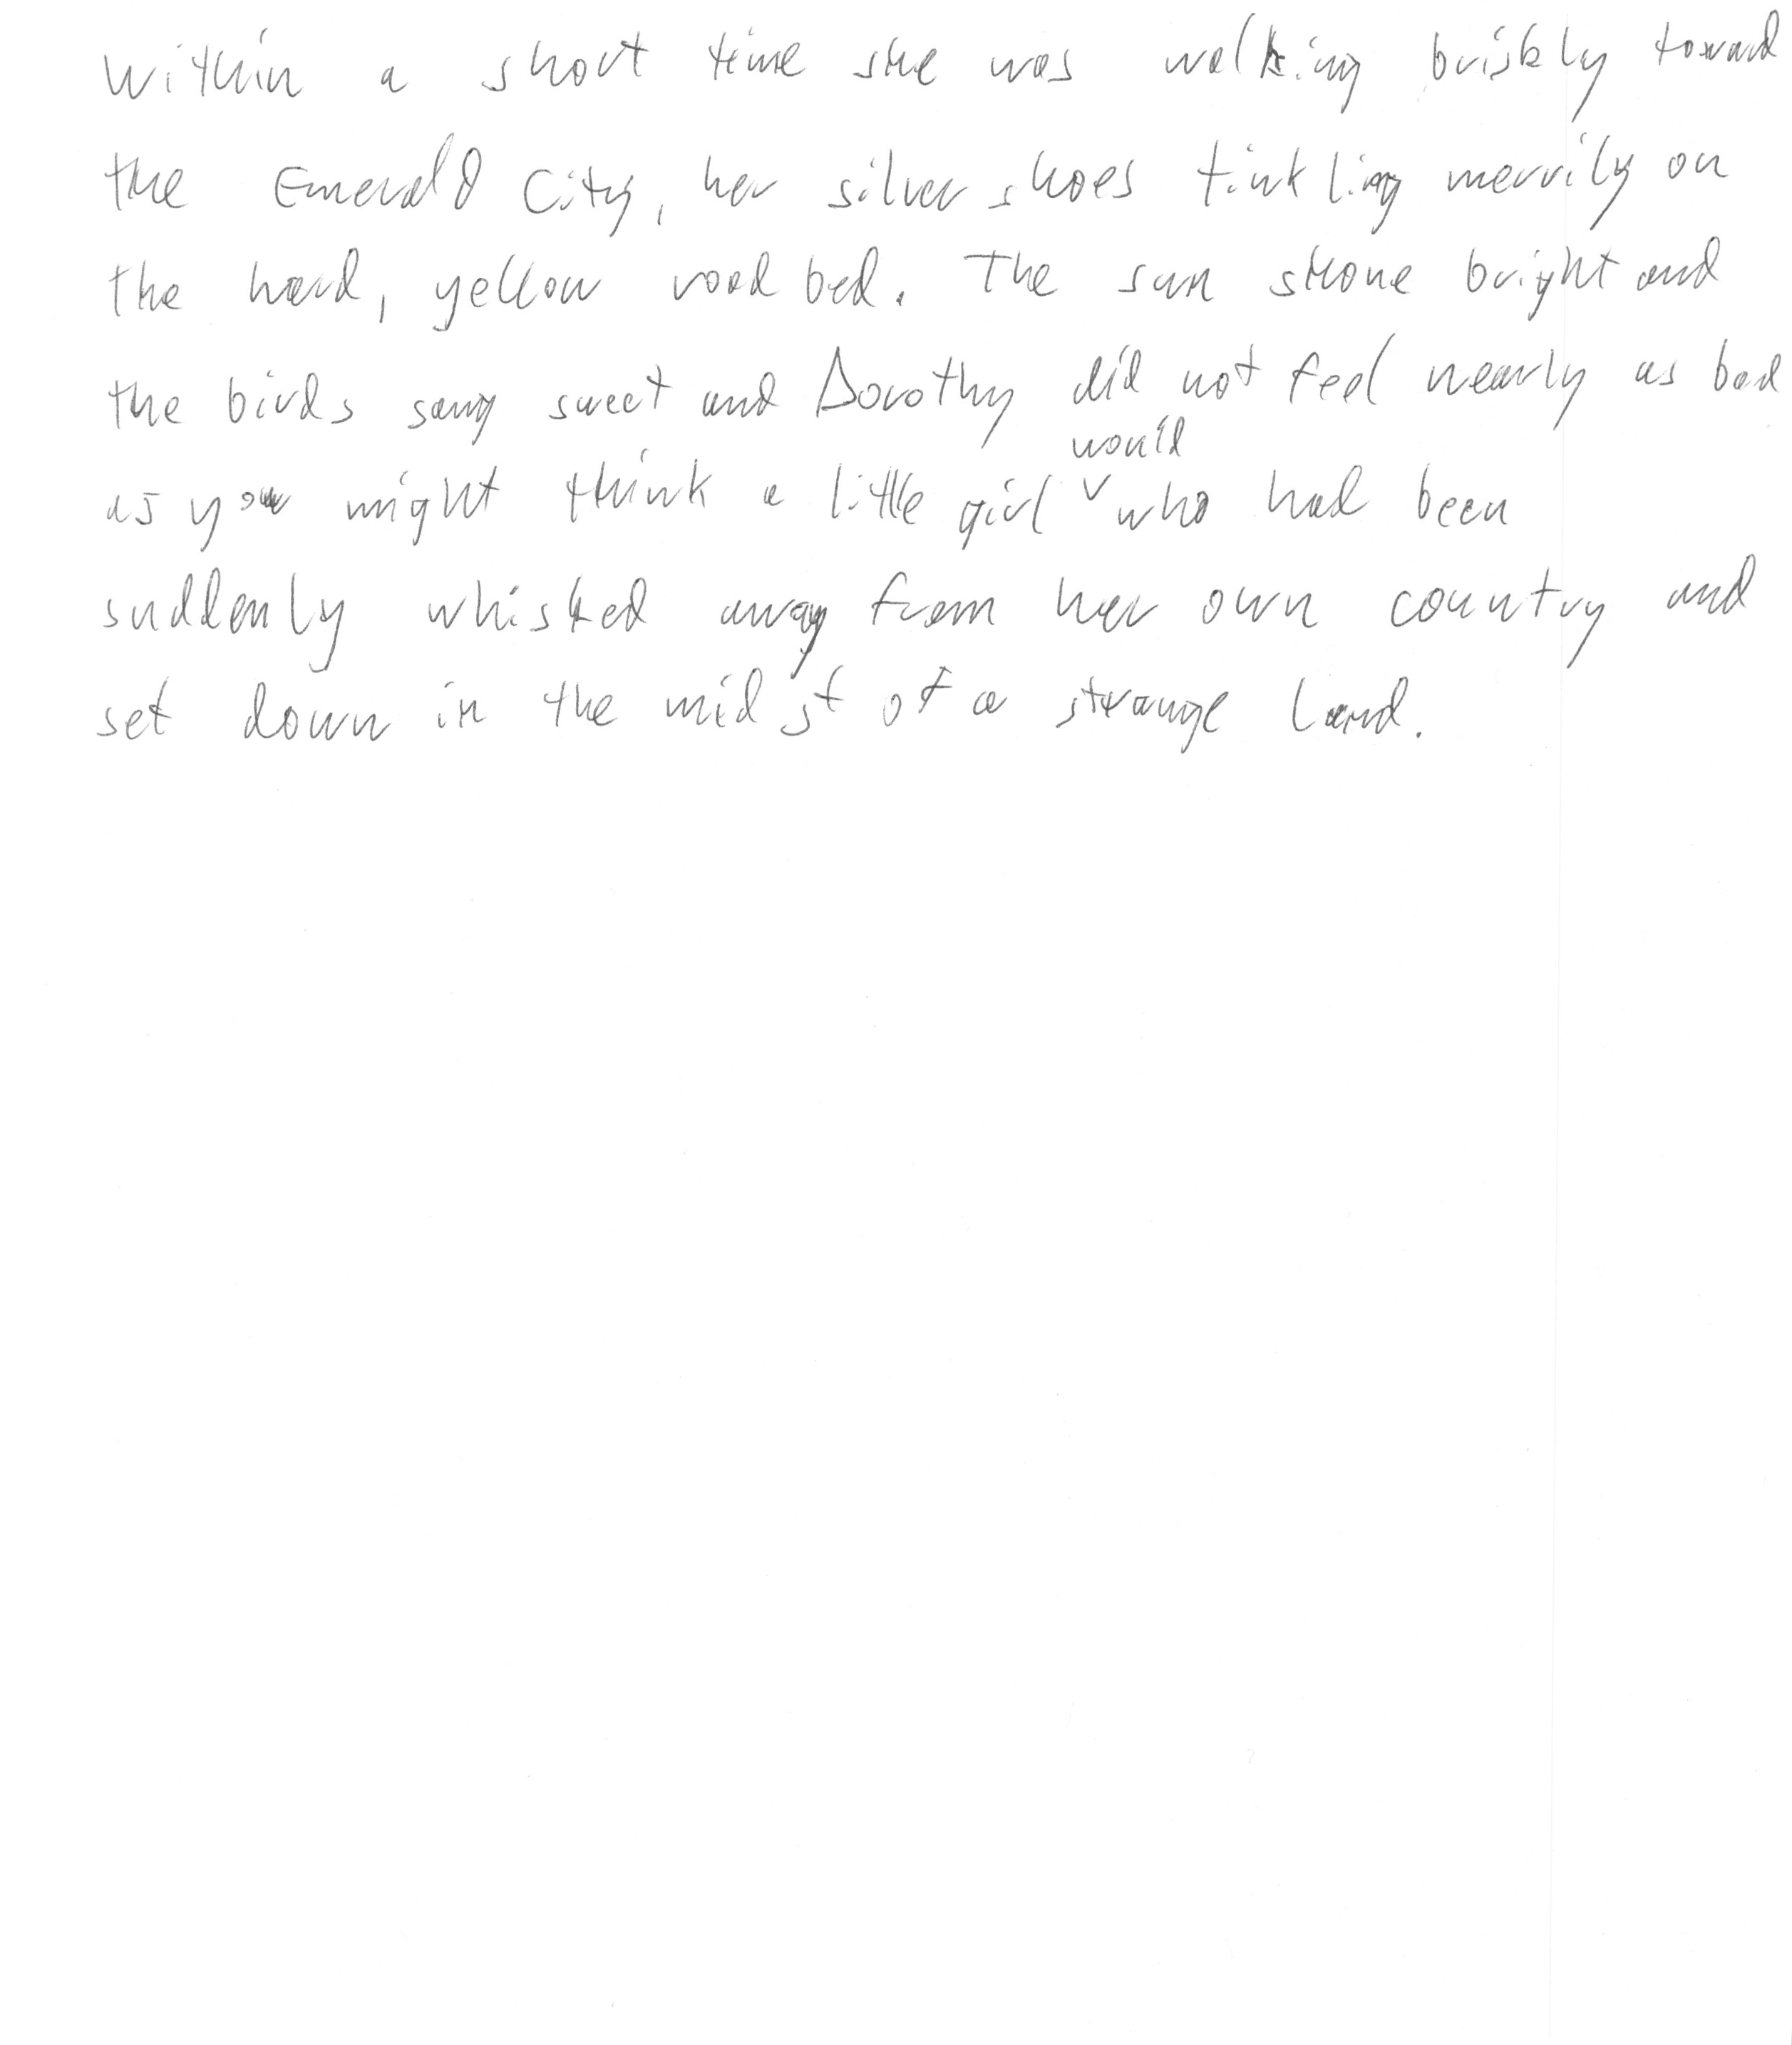 Within a short time she was walking briskly toward
the Emerald City, her silver shoes tinkling merrily on
the hard, yellow road bed. The sun shone bright and
the birds sang sweet and Dorothy did not feel nearly as bad
as you might think a little girl would who had been
suddenly whisked away from her own country and
set down in the midst of a strange land.